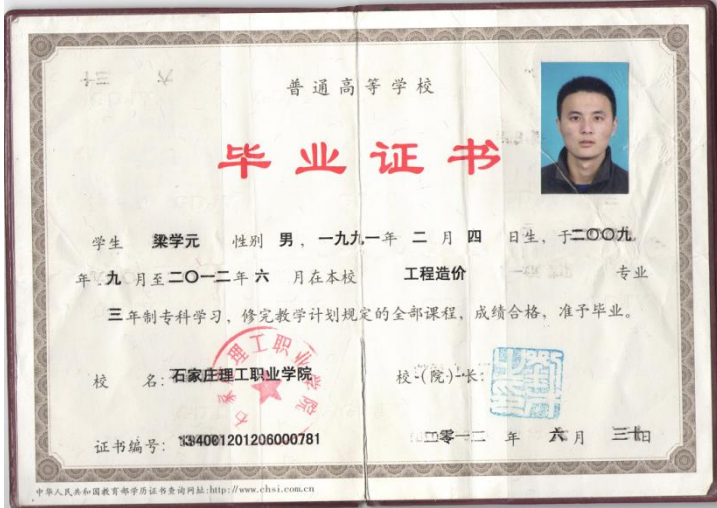 普通高等学校
毕业证书
学生 梁学元 性别 男，一九九一年 二 月 四 日生，于二〇〇九
年 九 月至二〇一二年 六 月在本校 工程造价 专业
三年制专科学习，修完教学计划规定的全部课程，成绩合格，准予毕业。
校 名：石家庄理工职业学院
校（院）长：
石家庄理工职业学院
证书编号：
二零一二 年 六 月 三十日
中华人民共和国教育部学历证书查询网址：http://www.chsi.com.cn